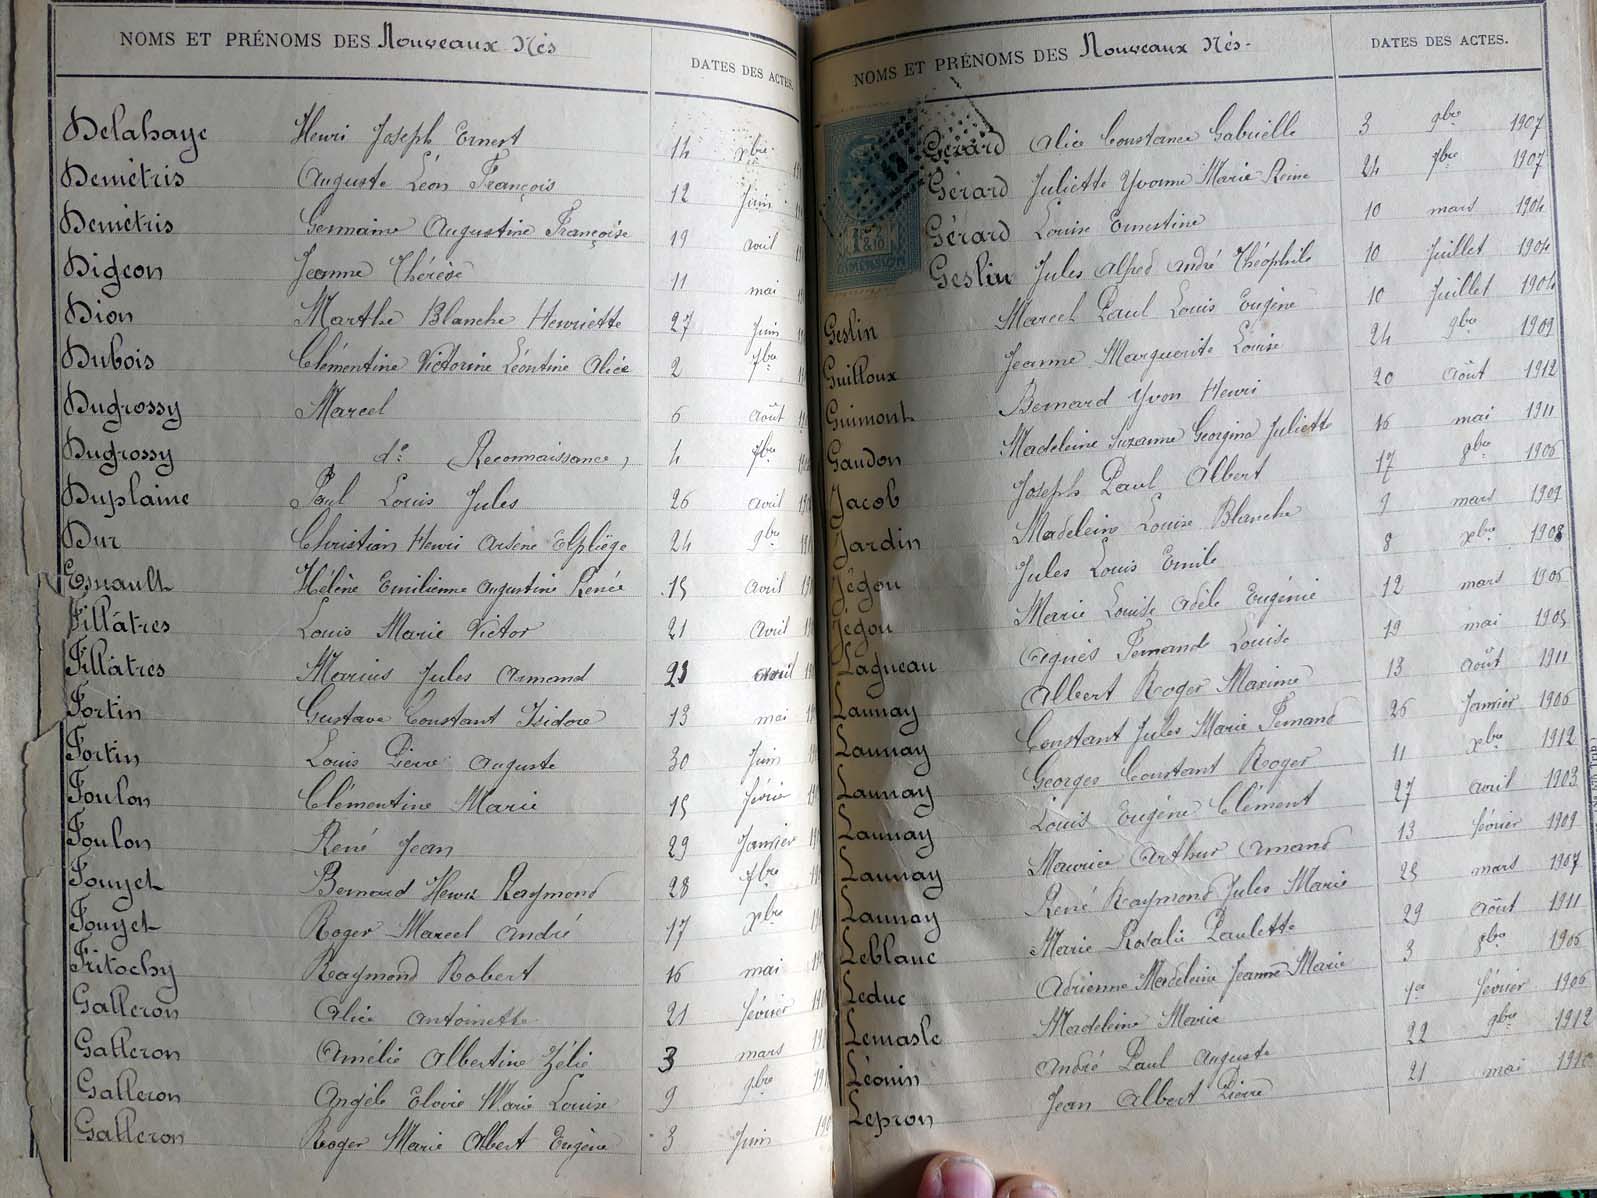 NOMS ET PRÉNOMS DES Nouveaux Nés DATES DES ACTES.
Delahaye Henri Joseph Ernest 14 xbre
Demétris Auguste Léon François 12 Juin
Demétris Germaine Augustine Françoise 19 avril
Digeon Jeanne Thérèse 11 mai
Dion Marthe Blanche Henriette 27 Juin
Dubois Clémentine Victorine Léontine Alice 2 7bre
Dugrossy Marcel 6 Août
Dugrossy do Reconnaissance 4 7bre
Duplaine Paul Louis Jules 26 avril
Dur Christian Henri Arsène 24 9bre
Esnault Hélène Emilienne Augustine Renée 15 avril
Fillâtres Louis Marie Victor 21 Avril
Fillâtres Marius Jules Armand 23 avril
Fortin Gustave Constant Isidore 13 mai
Fortin Louis Pierre Auguste 30 Juin
Foulon Clémentine Marie 15 février
Foulon René Jean 29 Janvier
Fouyet Bernard Henri Raymond 28 7bre
Fouyet Roger Marcel André 17 xbre
Fritochy Raymond Robert 16 mai
Galleron Alice Antoinette 21 février
Galleron Amélie Albertine Zélie 3 mars
Galleron Angèle Eloïse Marie Louise 9 9bre
Galleron Roger Marie Albert Eugène 3 Juin
NOMS ET PRÉNOMS DES Nouveaux Nés. DATES DES ACTES.
Gérard Alice Constance Gabrielle 3 9bre 1907
Gérard Juliette Yvonne Marie Reine 24 7bre 1907
Gérard Louise Ernestine 10 mars 1904
Geslin Jules Alfred André Théophile 10 Juillet 1904
Geslin Marcel Paul Louis Eugène 10 Juillet 1904
Guilloux Jeanne Marguerite Louise 24 9bre 1909
Guimont Bernard Yvon Henri 20 Août 1912
Gaudon Madeleine Suzanne Georgina Juliette 16 mai 1911
Jacob Joseph Paul Albert 17 8bre 1906
Jardin Madeleine Louise Blanche 9 mars 1909
Jégou Jules Louis Emile 8 xbre 1908
Jégou Marie Louise Adèle Eugénie 12 mars 1906
Lagneau Agnès Fernande Louise 19 mai 1905
Launay Albert Roger Maxime 13 Août 1911
Launay Constant Jules Marie Fernand 26 Janvier 1906
Launay Georges Constant Roger 11 xbre 1912
Launay Louis Eugène Clément 27 avril 1903
Launay Maurice Arthur Armand 13 février 1909
Launay René Raymond Jules Marie 25 mars 1907
Leblanc Marie Rosalie Paulette 29 Août 1911
Leduc Adrienne Madeleine Jeanne Marie 3 8bre 1906
Lemasle Madeleine Marie 1er février 1906
Léonin André Paul Auguste 22 9bre 1912
Lepron Jean Albert Pierre 21 mai 1910
2/10
DIMENSION